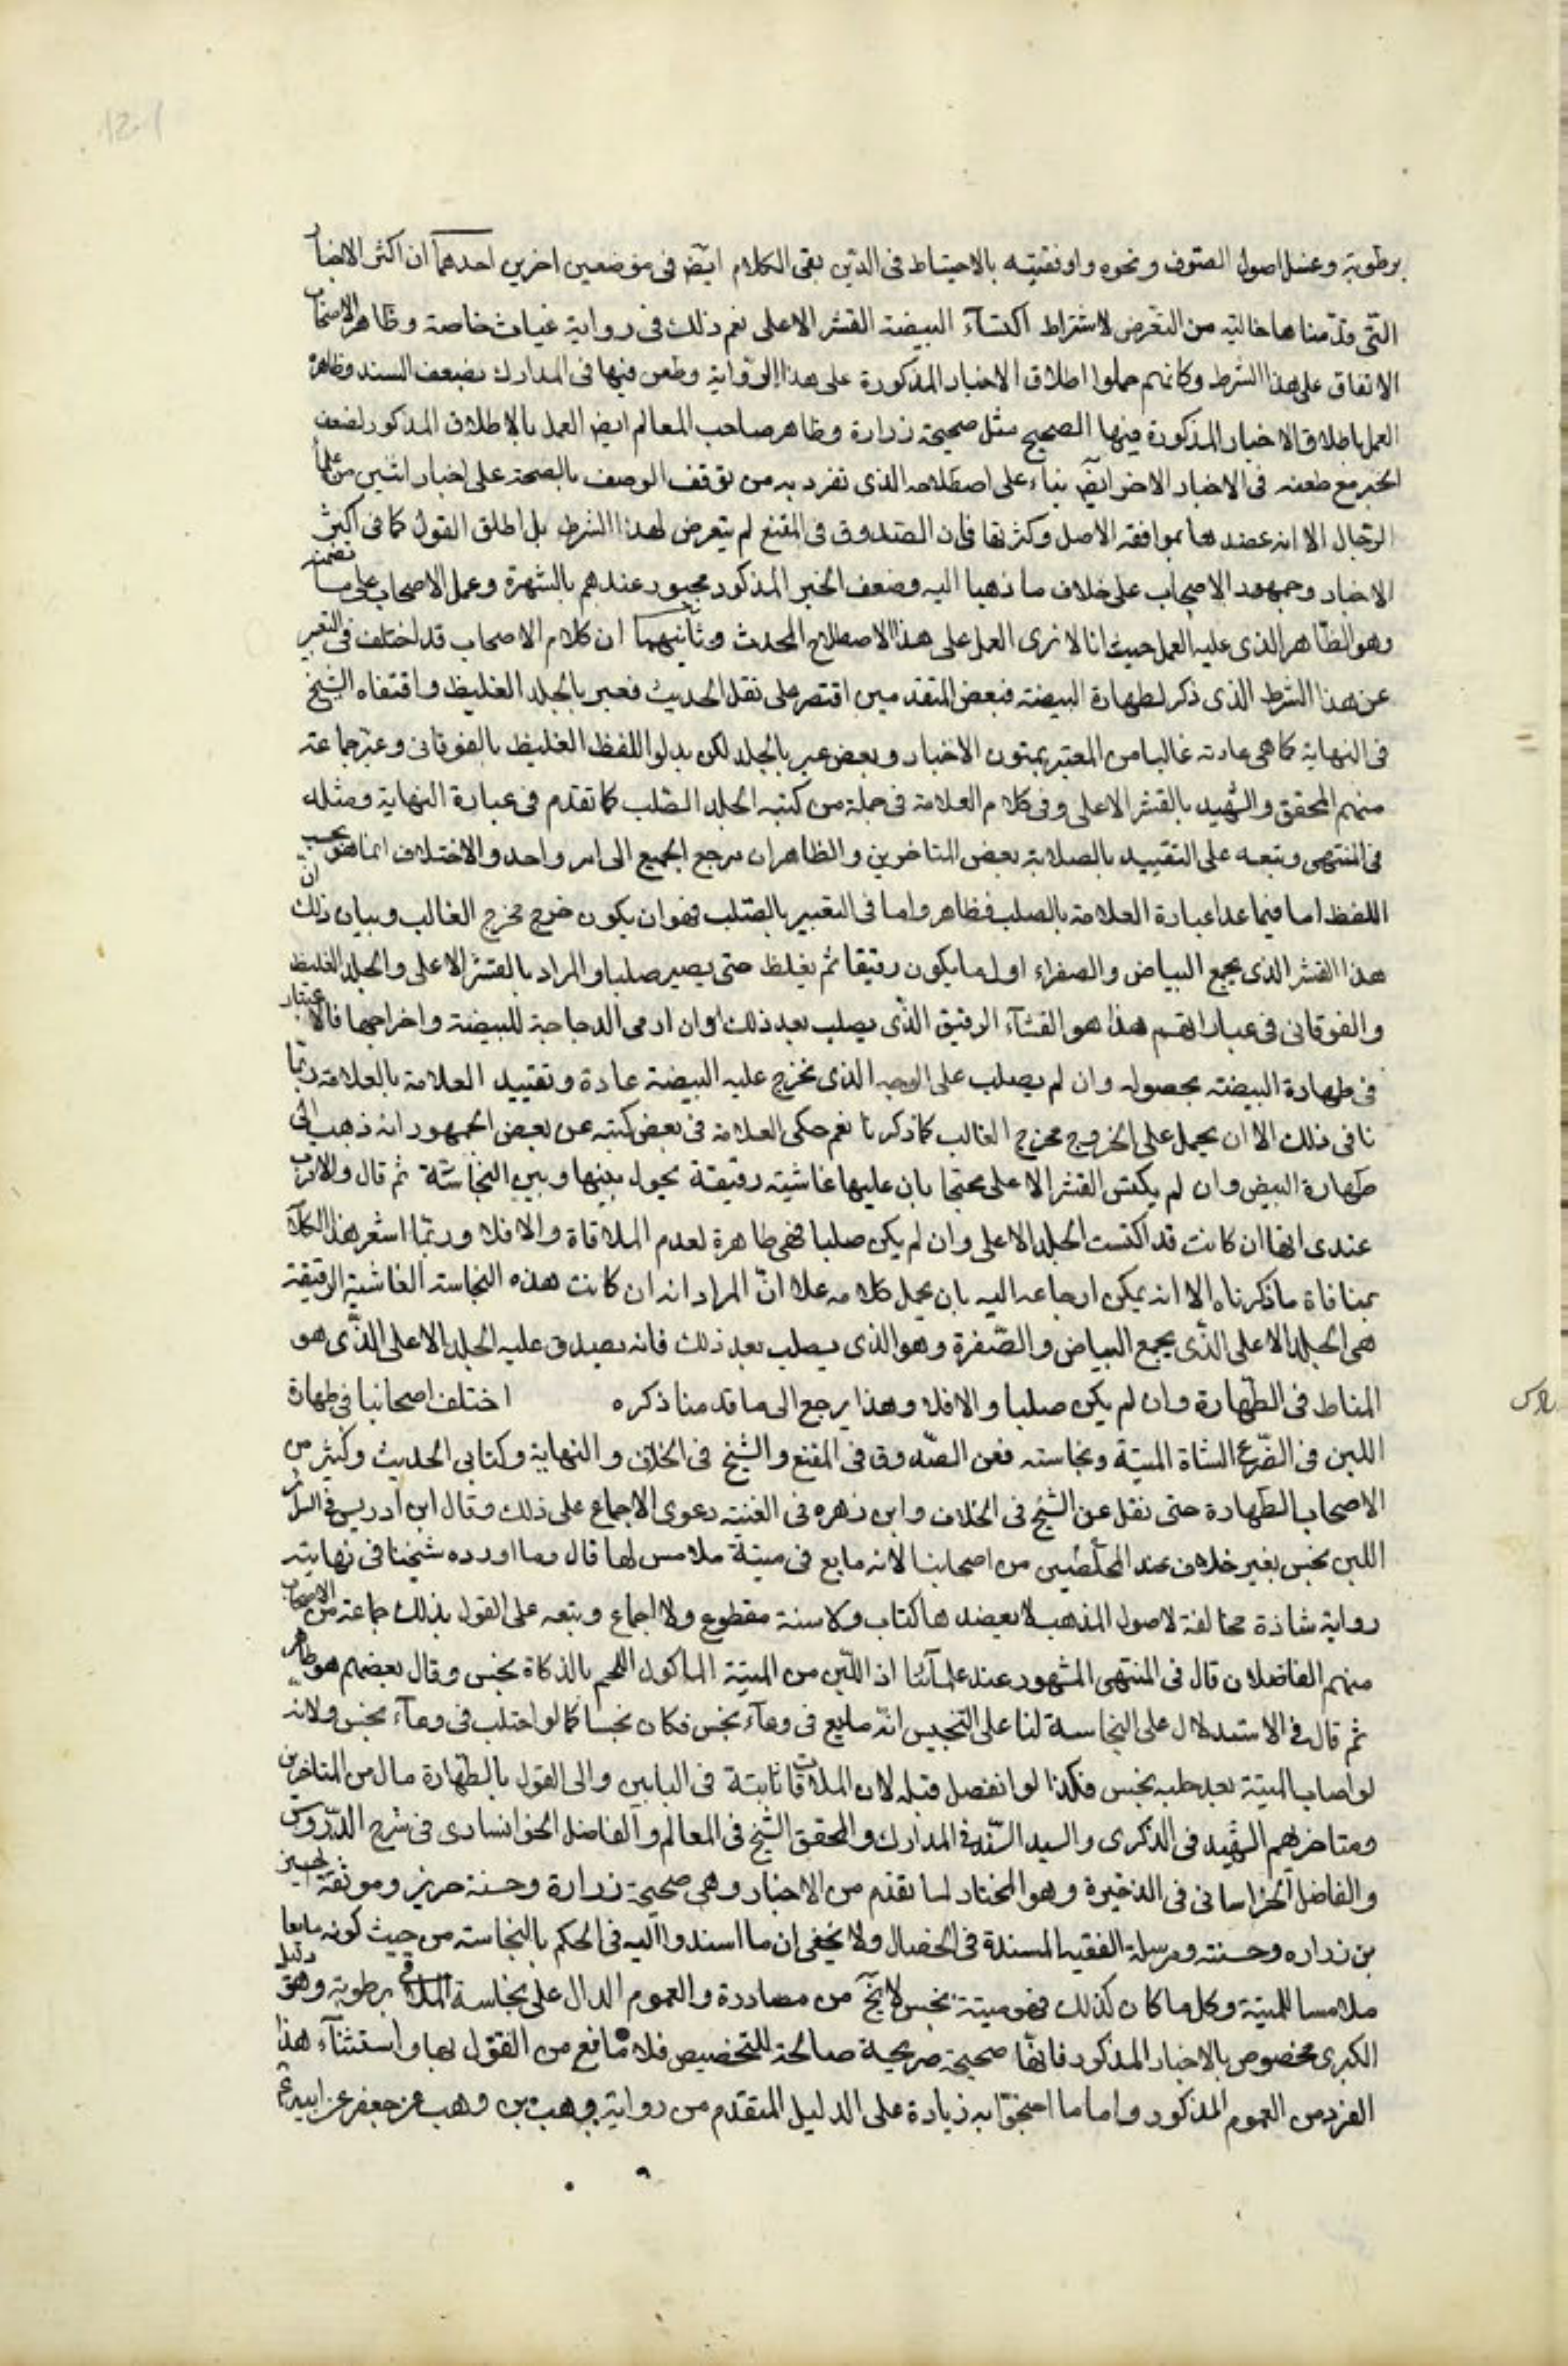 برطوبة وغسل اصول الصوف ونحوه واوفقيته بالاحتياط فى الدين بقى الكلام ايض فى موضعين اخرين احدهما ان اكثر الاخبار
التى قدمناها خالية من التعرض لاشتراط اكتساء البيضة القشر الاعلى نعم ذلك فى رواية غياث خاصة وظاهر الاصحاب
الاتفاق على هذا الشرط وكانهم حملوا اطلاق الاخبار المذكورة على هذا الرواية وطعن فيها فى المدارك بضعف السند وظاهره
العمل باطلاق الاخبار المذكورة فيها الصحيح مثل صحيحة زرارة وظاهر صاحب المعالم ايض العمل بالاطلاق المذكور لضعف
الخبر مع طعنه فى الاخبار الاخر ايض بناء على اصطلاحه الذى تفرد به من توقف الوصف بالصحة على اخبار اثنين من علماء
الرجال الا انه عضدها بموافقة الاصل وكثرتها فان الصدوق فى المقنع لم يتعرض لهذا الشرط بل اطلق القول كما فى اكثر
الاخبار وجمهور الاصحاب على خلاف ما ذهبا اليه وضعف الخبر المذكور مجبور عندهم بالشهرة وعمل الاصحاب على ما تضمنه
وهو الظاهر الذى عليه العمل حيث انا لا نرى العمل على هذا الاصطلاح المحدث وثانيهما ان كلام الاصحاب قد اختلف فى التعبير
عن هذا الشرط الذى ذكر لطهارة البيضة فبعض المتقدمين اقتصر على نقل الحديث فعبر بالجلد الغليظ واقتفاه الشيخ
فى النهاية كما هى عادته غالبا من التعبير بمتون الاخبار وبعض عبر بالجلد لكن بدلوا اللفظ الغليظ بالفوقانى وعبر جماعة
منهم المحقق والشهيد بالقشر الاعلى وفى كلام العلامة فى جملة من كتبه الجلد الصلب كما تقدم فى عبارة النهاية ومثله
فى المنتهى وتبعه على التقييد بالصلابة بعض المتاخرين والظاهر ان مرجع الجميع الى امر واحد والاختلاف انما هو بحسب
اللفظ اما فيما عدا عبارة العلامة بالصلب فظاهر واما فى التعبير بالصلب فهو ان يكون خرج مخرج الغالب وبيان ذلك ان
هذا القشر الذى يجمع البياض والصفراء اول ما يكون رقيقا ثم يغلظ حتى يصير صلبا والمراد بالقشر الاعلى والجلد الغليظ
والفوقانى فى عباراتهم هذا هو الغشاء الرقيق الذى يصلب بعد ذلك اوان ارمى الدجاجة للبيضة واخراجها فالاعتبار
فى طهارة البيضة بحصوله وان لم يصلب على الوجه الذى تخرج عليه البيضة عادة وتقييد العلامة بالعلامة ربما
نافى ذلك الا ان يحمل على الخروج مخرج الغالب كما ذكرنا نعم حكى العلامة فى بعض كتبه عن بعض الجمهور انه ذهب الى
طهارة البيض وان لم يكتس القشر الاعلى محتجا بان عليها غاشية رقيقة يحول بينها وبين النجاسة ثم قال والاقرب
عندى انها ان كانت قد اكتست الجلد الاعلى وان لم يكن صلبا فهى طاهرة لعدم الملاقاة والا فلا وربما اشعر هذا الكلام
بمنافاة ما ذكرناه الا انه يمكن ارجاعه اليه بان يحمل كلامه علا ان المراد انه ان كانت هذه النجاسة الغاشية الرقيقة
هى الجلد الاعلى الذى يجمع البياض والصفرة وهو الذى يصلب بعد ذلك فانه يصدق عليه الجلد الاعلى الذى هو
المناط فى الطهارة وان لم يكن صلبا والا فلا وهذا يرجع الى ما قدمنا ذكره اختلف اصحابنا فى طهارة
اللبن فى الضرع الشاة الميتة ونجاسته فعن الصدوق فى المقنع والشيخ فى الخلاف والنهاية وكتابى الحديث وكثير من
الاصحاب الطهارة حتى نقل عن الشيخ فى الخلاف وابن زهره فى الغنية دعوى الاجماع على ذلك وقال ابن ادريس فى السرائر
اللبن نجس بغير خلاف عند المحصلين من اصحابنا لانه مايع فى ميتة ملامس لها قال وما اورده شيخنا فى نهايته
رواية شاذة مخالفة لاصول المذهب لا يعضدها كتاب ولا سنة مقطوع ولا اجماع وتبعه على القول بذلك جماعة من الاصحاب
منهم الفاضلان قال فى المنتهى المشهور عند علمائنا ان اللبن من الميتة الماكول اللحم بالذكاة نجس وقال بعضهم هو طاهر
ثم قال فى الاستدلال على النجاسة لنا على التنجيس انه مايع فى وعاء نجس فكان نجسا كما لو احتلب فى وعاء نجس ولانه
لو اصاب الميتة بعد حلبه نجس فكذا لو انفصل قبله لان الملاقات ثابتة فى البابين والى القول بالطهارة مال من المتاخرين
ومتاخريهم الشهيد فى الذكرى والسيد السند فى المدارك والمحقق الشيخ فى المعالم والفاضل الخوانسارى فى شرح الدروس
والفاضل الخراسانى فى الذخيرة وهو المختار لما تقدم من الاخبار وهى صحيحة زرارة وحسنة حريز وموثقة الحسين
بن زراره وحسنته ومرسلة الفقيه المسندة فى الخصال ولا يخفى ان ما اسندوا اليه فى الحكم بالنجاسة من حيث كونه مايعا
ملامسا للميتة وكل ما كان كذلك فهو ميتة نجس لا يخ من مصادرة والعموم الدال على نجاسة الملاقى برطوبة وهو دليل
الكبرى مخصوص بالاخبار المذكور فانها صحيحة صريحة صالحة للتخصيص فلا مانع من القول بها واستثناء هذا
الفرد من العموم المذكور واما ما احتجوا به زيادة على الدليل المتقدم من رواية وهب بن وهب عن جعفر عن ابيه ع